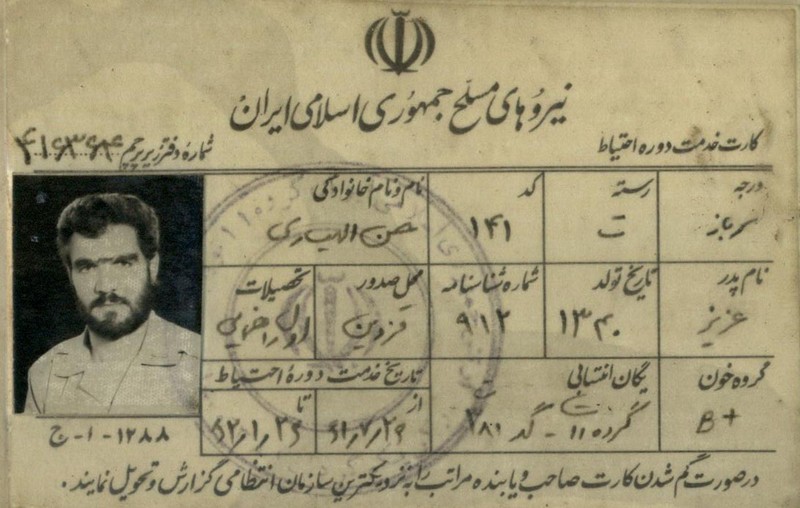 نیروهای مسلح جمهوری اسلامی ایران
کارت خدمت دوره احتیاط
شماره دفتر زیر پرچم ۴۱۶۳۶۴
درجه رسته کد نام و نام خانوادگی
سرباز ت ۱۴۱ حسن الهیاری
نام پدر تاریخ تولد شماره شناسنامه محل صدور تحصیلات
عزیز ۱۳۴۰ ۹۱۲ قزوین اول راهنمایی
گروه خون یگان انتسابی تاریخ خدمت دوره احتیاط
B+ گردان ۱۱ - گد ۲۸۱ از ۶۱/۷/۲۶ تا ۶۲/۱/۲۶
۱۲۸۸ - ۱ - ج
درصورت گم شدن کارت صاحب و یا بنده مراتب را به نزدیکترین سازمان انتظامی گزارش و تحویل نمایند.